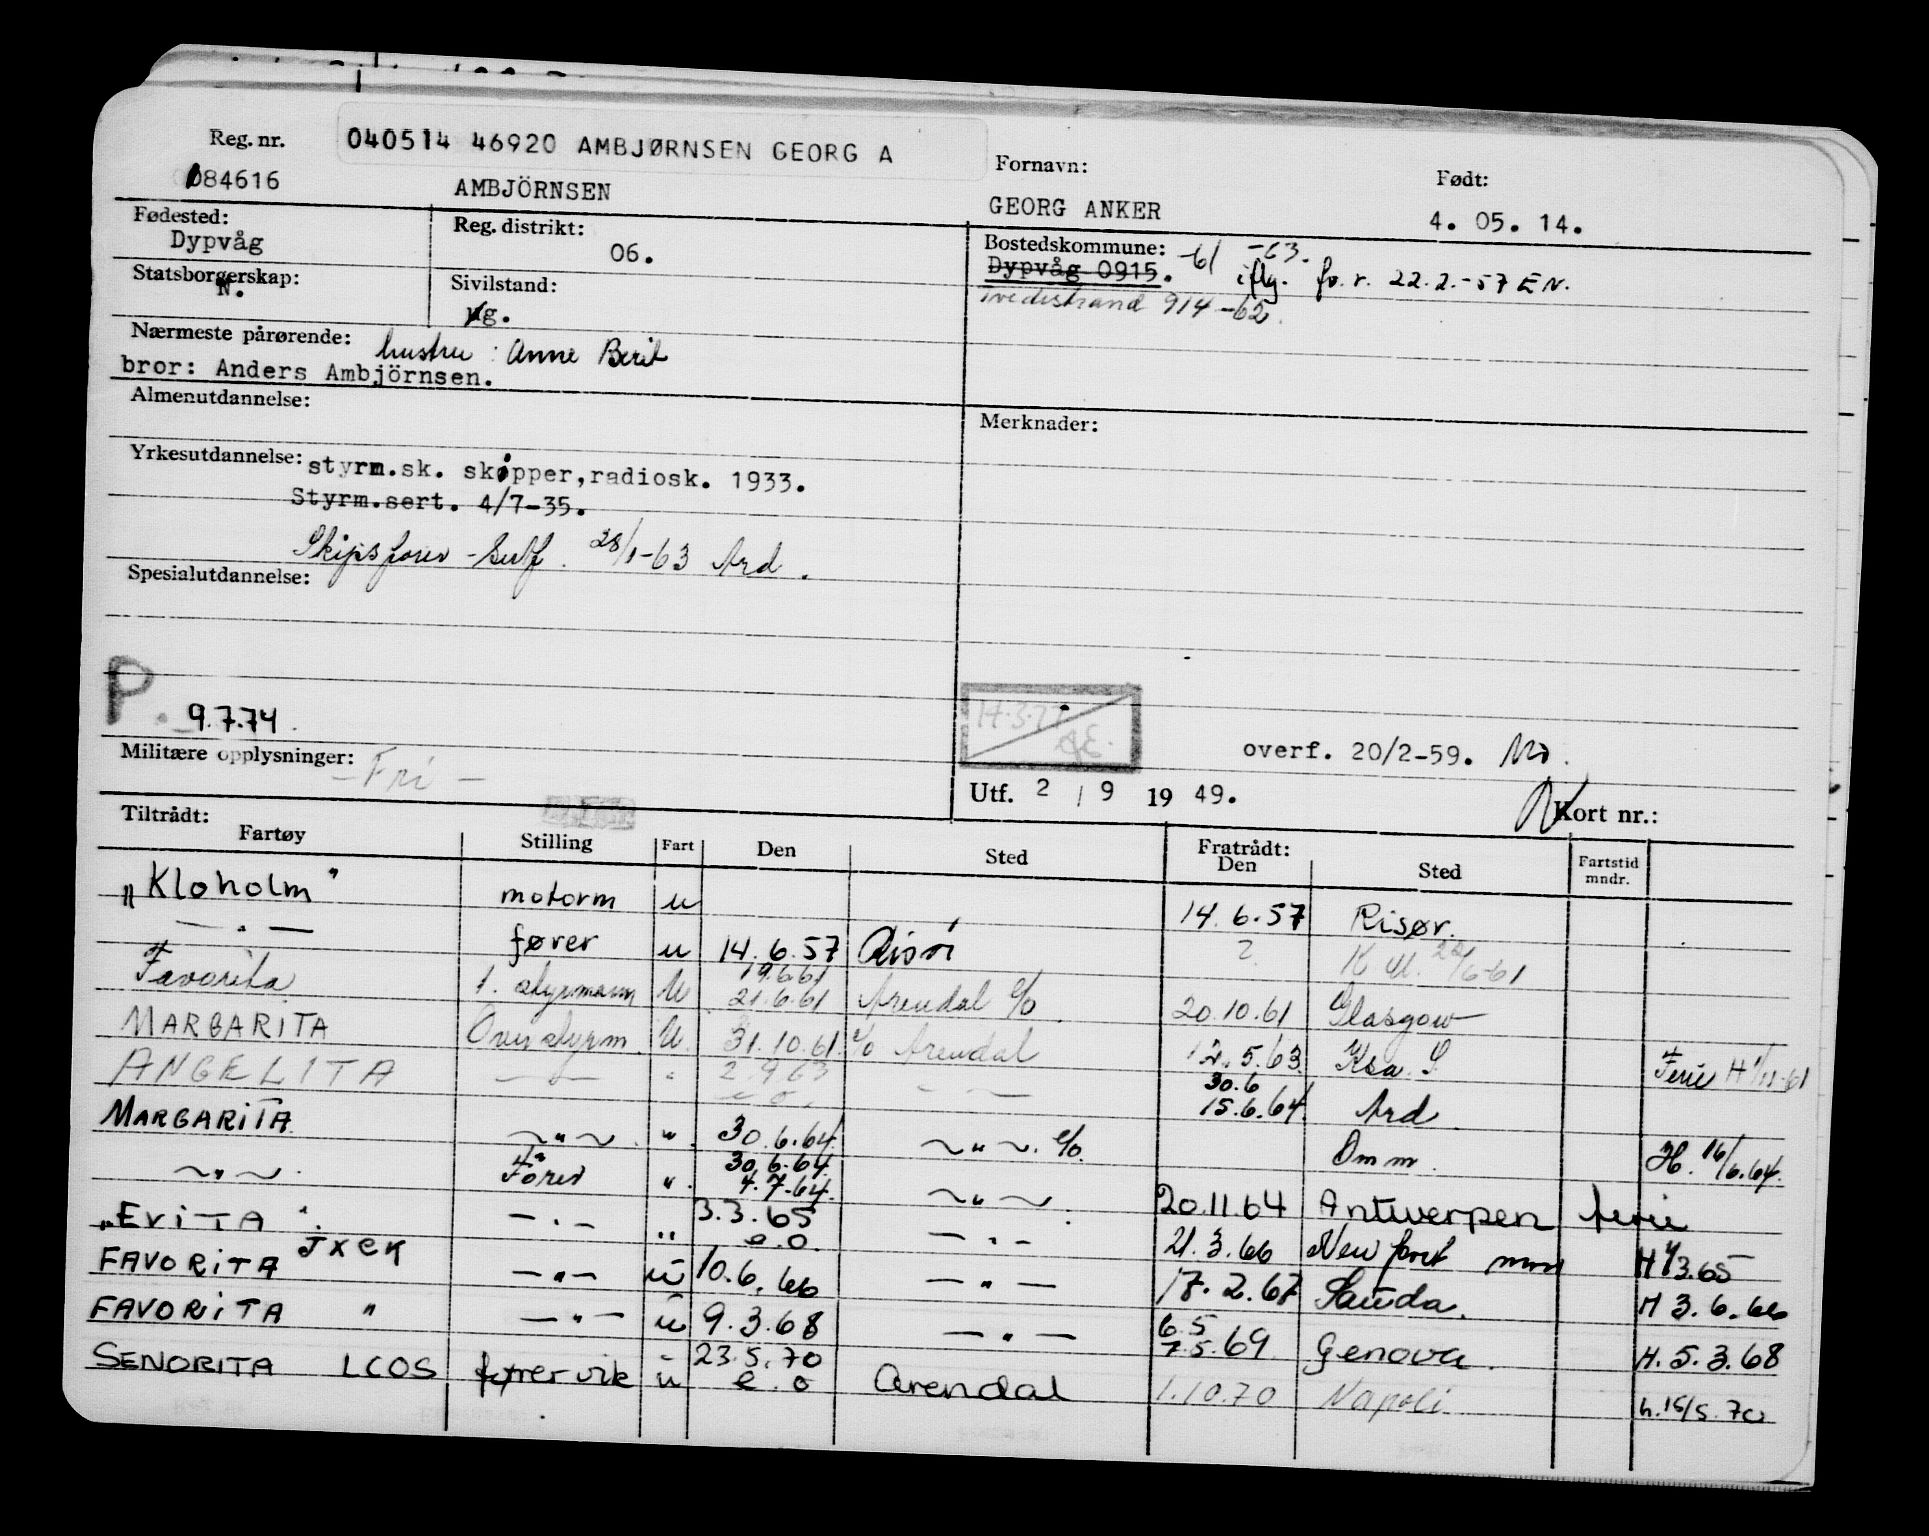 Reg. nr. 040514 46920 AMBJØRNSEN GEORG A Fornavn: Født:
084616 AMBJÖRNSEN GEORG ANKER 4. 05. 14.
Fødested: Reg. distrikt: Bostedskommune: -61 -63.
Dypvåg 06. Dypvåg 0915. iflg. fv. r. 22.2.-57 EN.
Statsborgerskap: Sivilstand: Tvedestrand 914 -62.
N. g.
Nærmeste pårørende: hustru: Anne Berit
bror: Anders Ambjörnsen.
Almenutdannelse: Merknader:
Yrkesutdannelse: styrm.sk. skipper, radiosk. 1933.
Styrm.sert. 4/7-35.
Skipsfører - sertf. 28/1-63 Ard.
Spesialutdannelse:
P. 9.7.74. 14.3.77
Militære opplysninger: - Fri - overf. 20/2-59.
Utf. 2 / 9 19 49. Kort nr.:
Tiltrådt: Fratrådt:
Fartøy Stilling Fart Den Sted Den Sted Fartstid mndr.
"Kloholm" motorm u 14.6.57 Risør.
— " — fører u 14.6.57 Risör ? K.M. 22/6-61
19.6.61
Favorita 1. styrmann U 21.6.61 Arendal e/o 20.10.61 Glasgow
MARGARITA Overstyrm. U. 31.10.61. e/o Arendal 12.5.63. Ksa. S. Ferie H 1/11-61
ANGELITA — " — " 2.9.63 e.o. — " — 30.6 15.6.64. Ard.
MARGARITA. ~ " ~. ". 30.6.64. ~ " ~. e/o. Omm. H. 16/6.64.
~ " ~. Förer ". 30.6.64. 4.7.64. ~ " ~. 20.11.64 Antwerpen ferie
"EVITA". — " — " 3.3.65 e.o. — " — 21.3.66 Newport H 1/3.65
FAVORITA JXCK — " — u 10.6.66 — " — 17.2.67 Sauda. H 3.6.66
FAVORITA " — " — u 9.3.68 — " — 6.5 7.5.69 Genova. H. 5.3.68
SENORITA LCOS fører vik u 23.5.70 e.o Arendal 1.10.70 Napoli h. 15/5.70